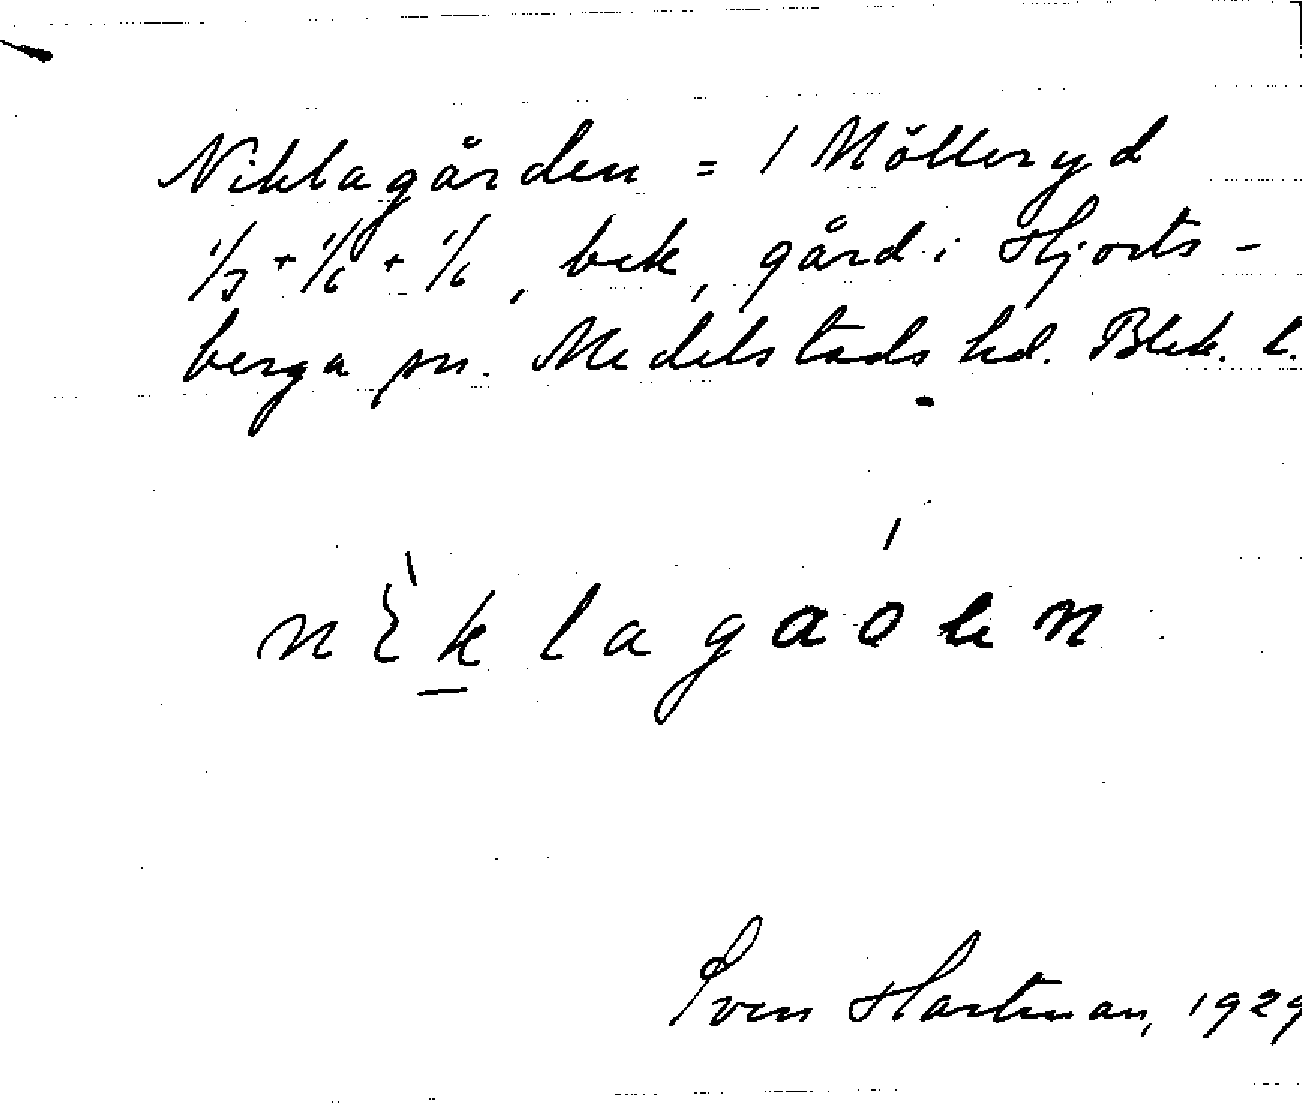 Niklagården = 1 Mölleryd
1/3 + 1/6 + 1/6, bek, gård i Hjorts-
berga sn. Medelstads hd. Blek. l.
Sven Hartman, 1929